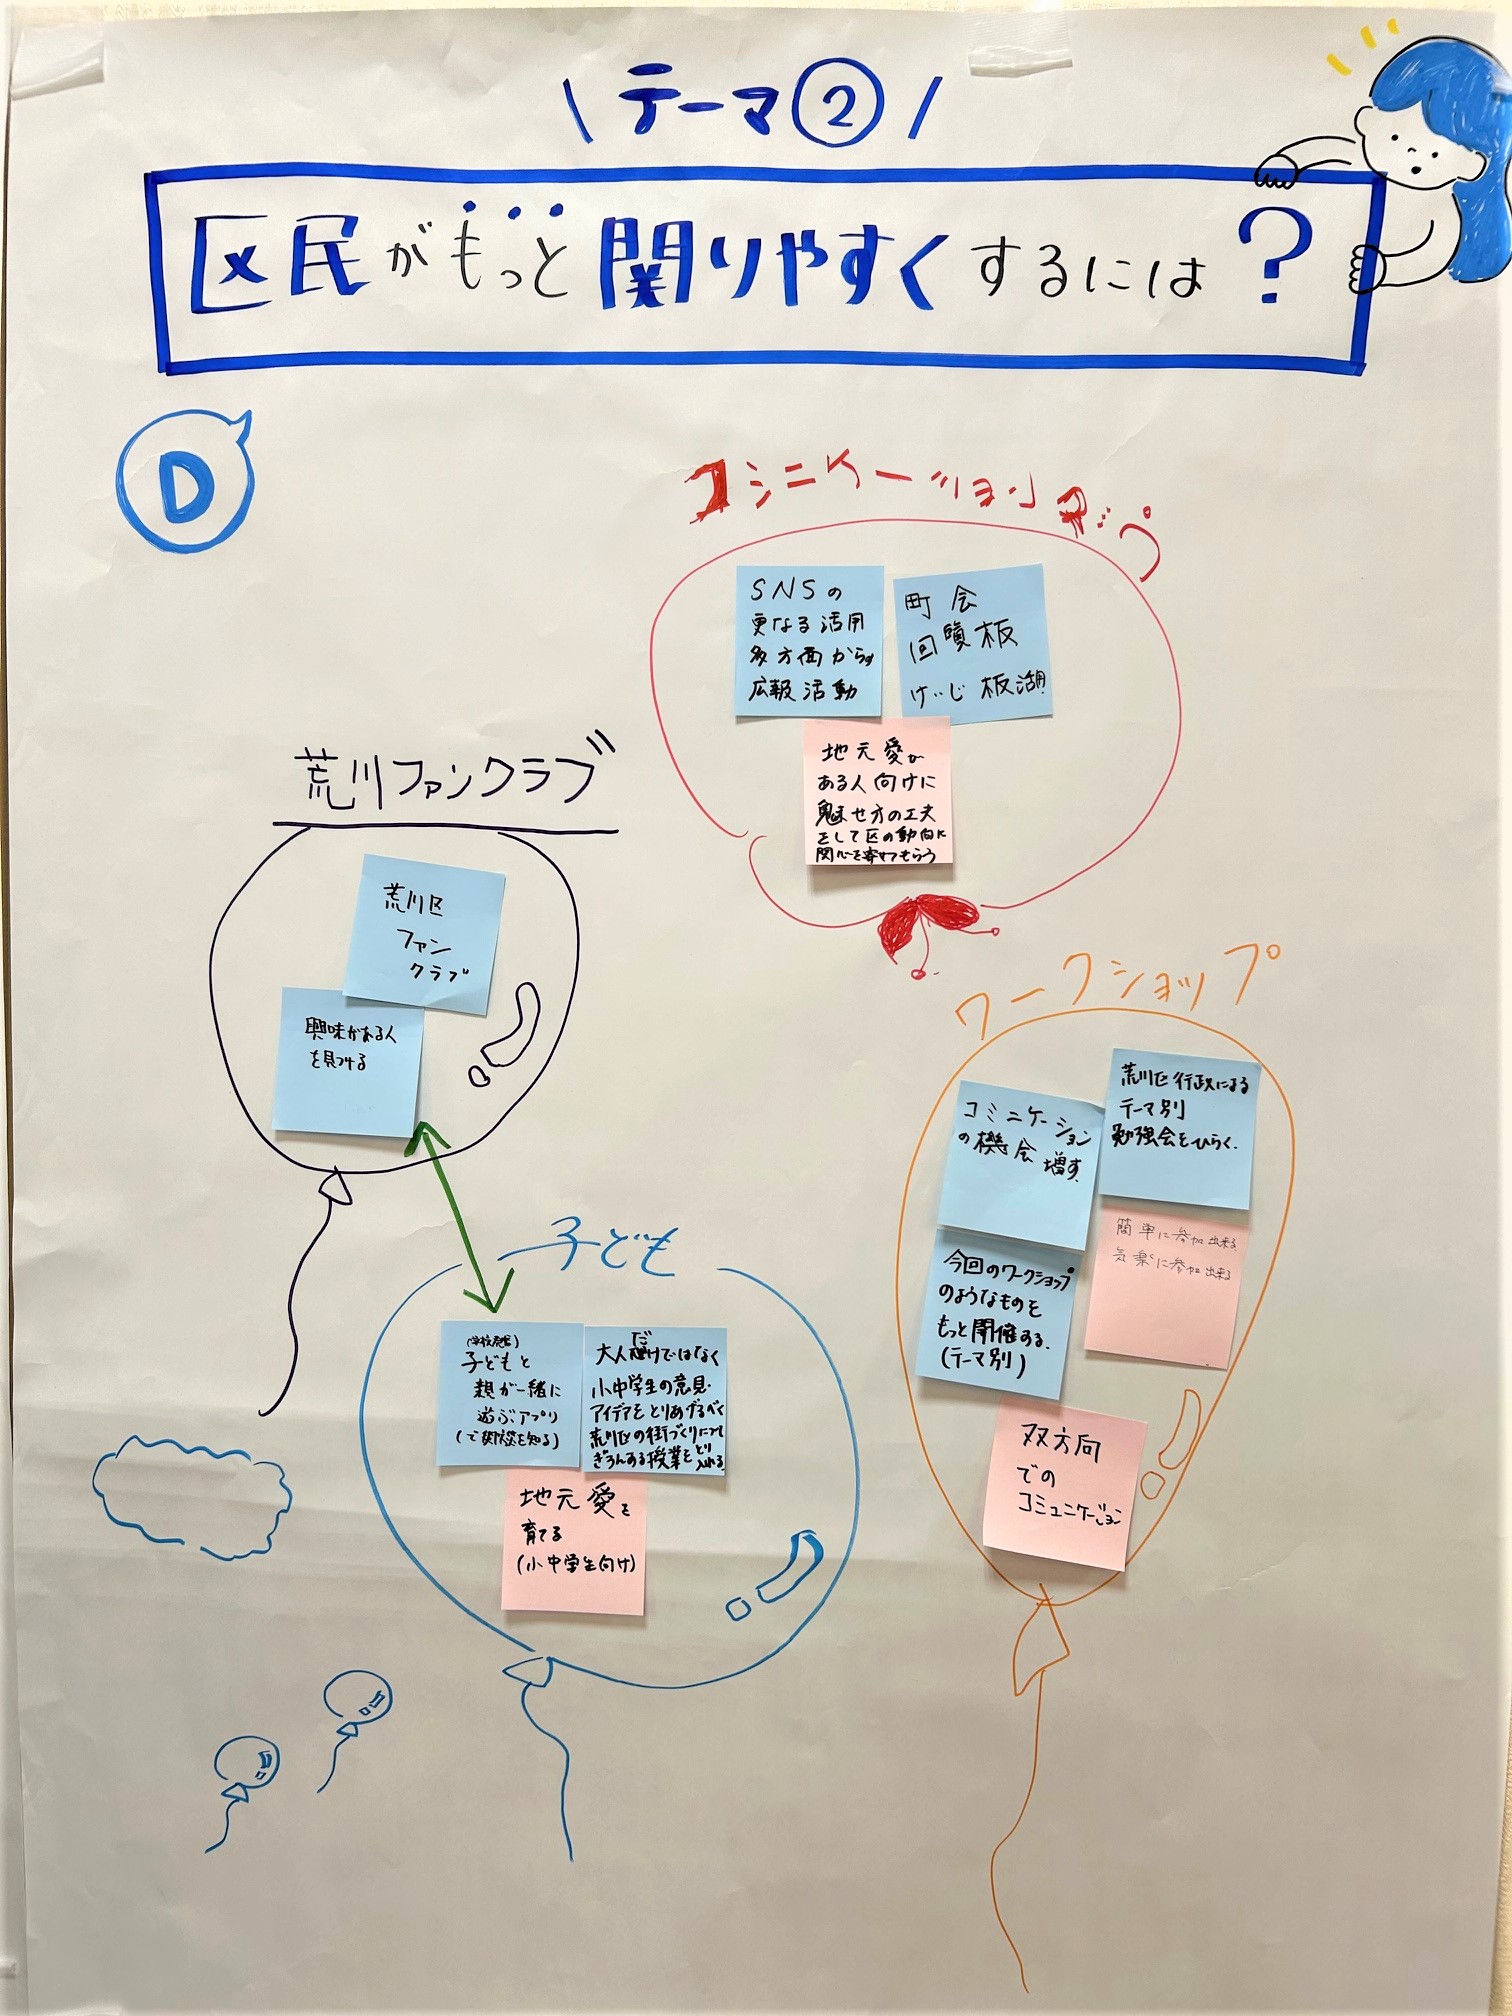 テーマ②
区民がもっと関りやすくするには?
D
コミニケーションマップ
SNSの
更なる活用
多方面からの
広報活動
町会
回覧板
けいじ板活用
地元愛が
ある人向けに
魅せ方の工夫
をして区の動向に
関心を寄せてもらう
荒川ファンクラブ
荒川区
ファン
クラブ
興味がある人
を見つける
ワークショップ
コミニケーション
の機会増す、
荒川区行政による
テーマ別
勉強会をひらく、
簡単に参加出来る
気楽に参加出来る
今回のワークショップ
のようなものを
もっと開催する、
(テーマ別)
双方向
での
コミュニケーション
子ども
子どもと
親が一緒に
遊ぶアプリ
大人だけではなく
小中学生の意見・
アイデアをとりあげるべく
荒川区の街づくりについて
ぎろんする授業をとり入れる
地元愛を
育てる
(小中学生向け)